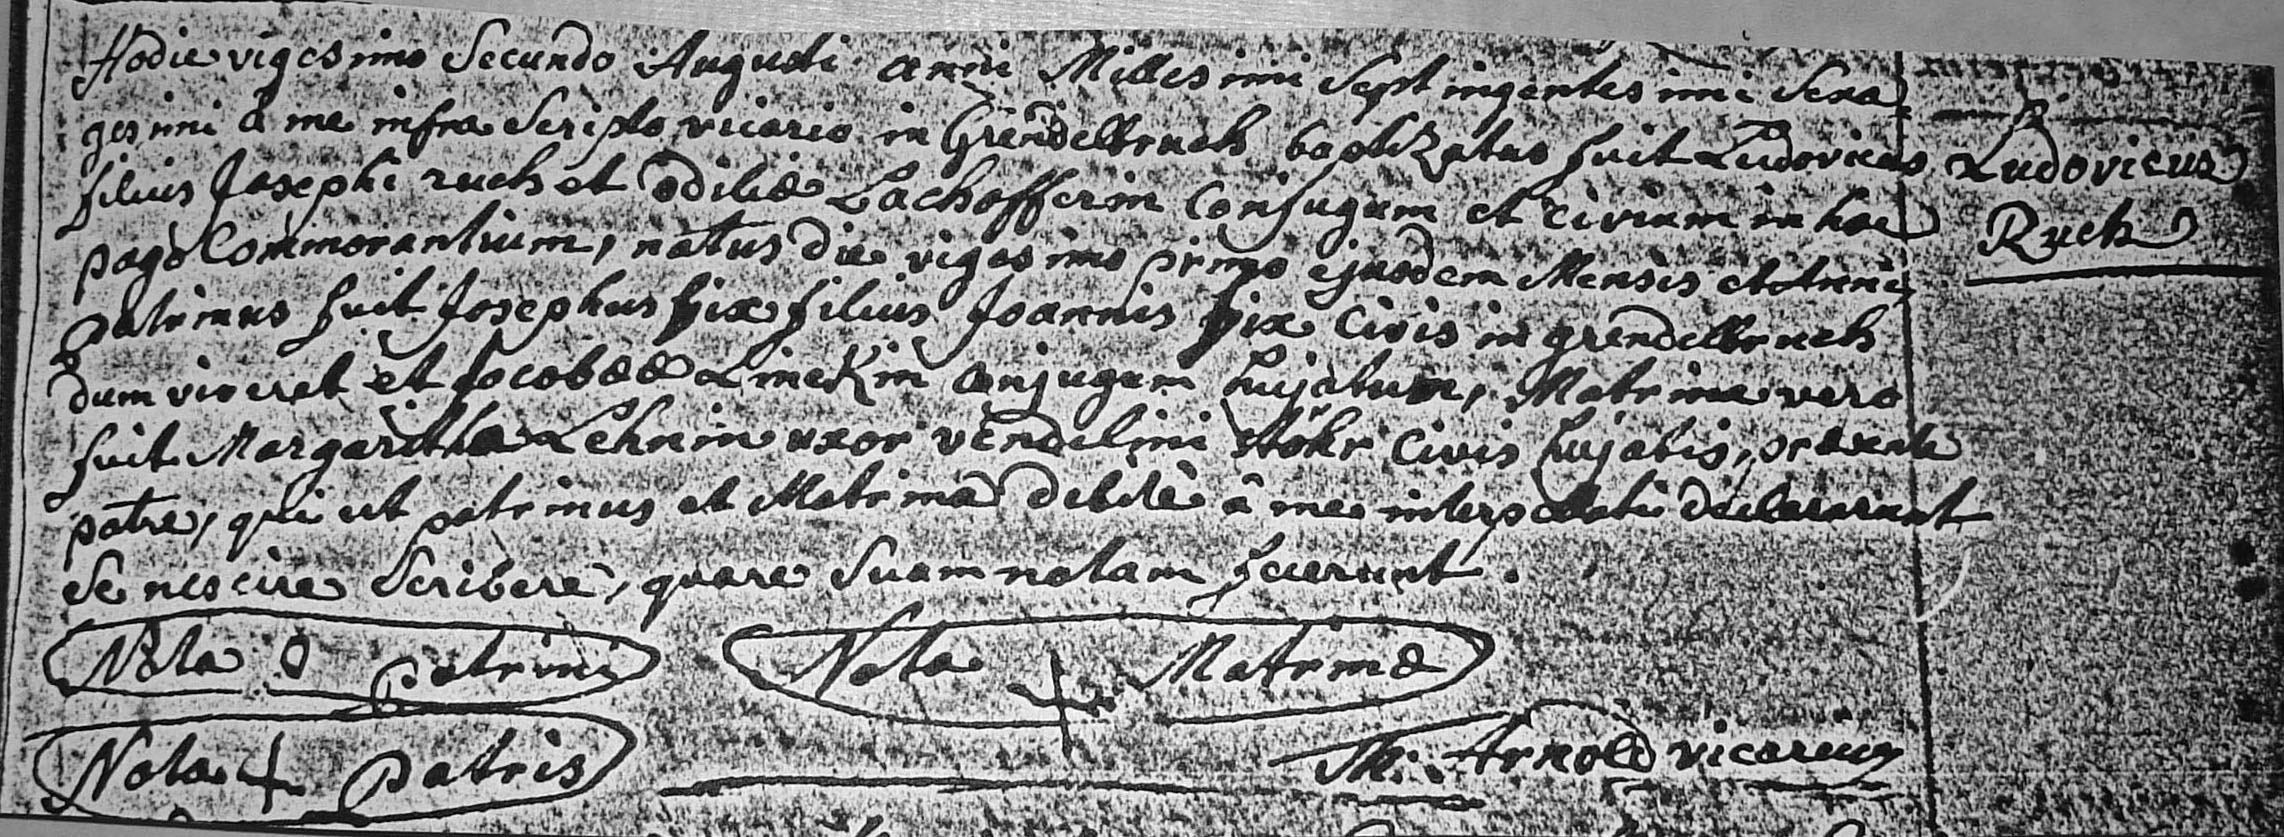 Hodie vigesimo Secundo Augusti anni Millesimi Septingentesimi Sexa
gesimi à me infra Scripto vicario in Grendelbruch baptizatus fuit Ludovicus
Ludovicus
Ruch
filius Josephi ruch et odiliæ Lachofferin Conjugum et civium in hoc
pago Commorantium, natus die vigesimo primo ejusdem Mensis et Anni
patrinus fuit Josephus hix filius Joannis hix civis in grendelbruch
dum viveret et Jacobææ Linckin conjugum hujatum, Matrina vero
fuit Margaritha Lehnin uxor vendelini Civis hujatis, præsente
patre, qui ut patrinus et Matrina debite à me interpellati declararunt
Se nescire Scribere, quare Suam notam fecerunt.
Nota O patrini
Nota + Matrinæ
Nota + patris
Th. Arnold vicarius